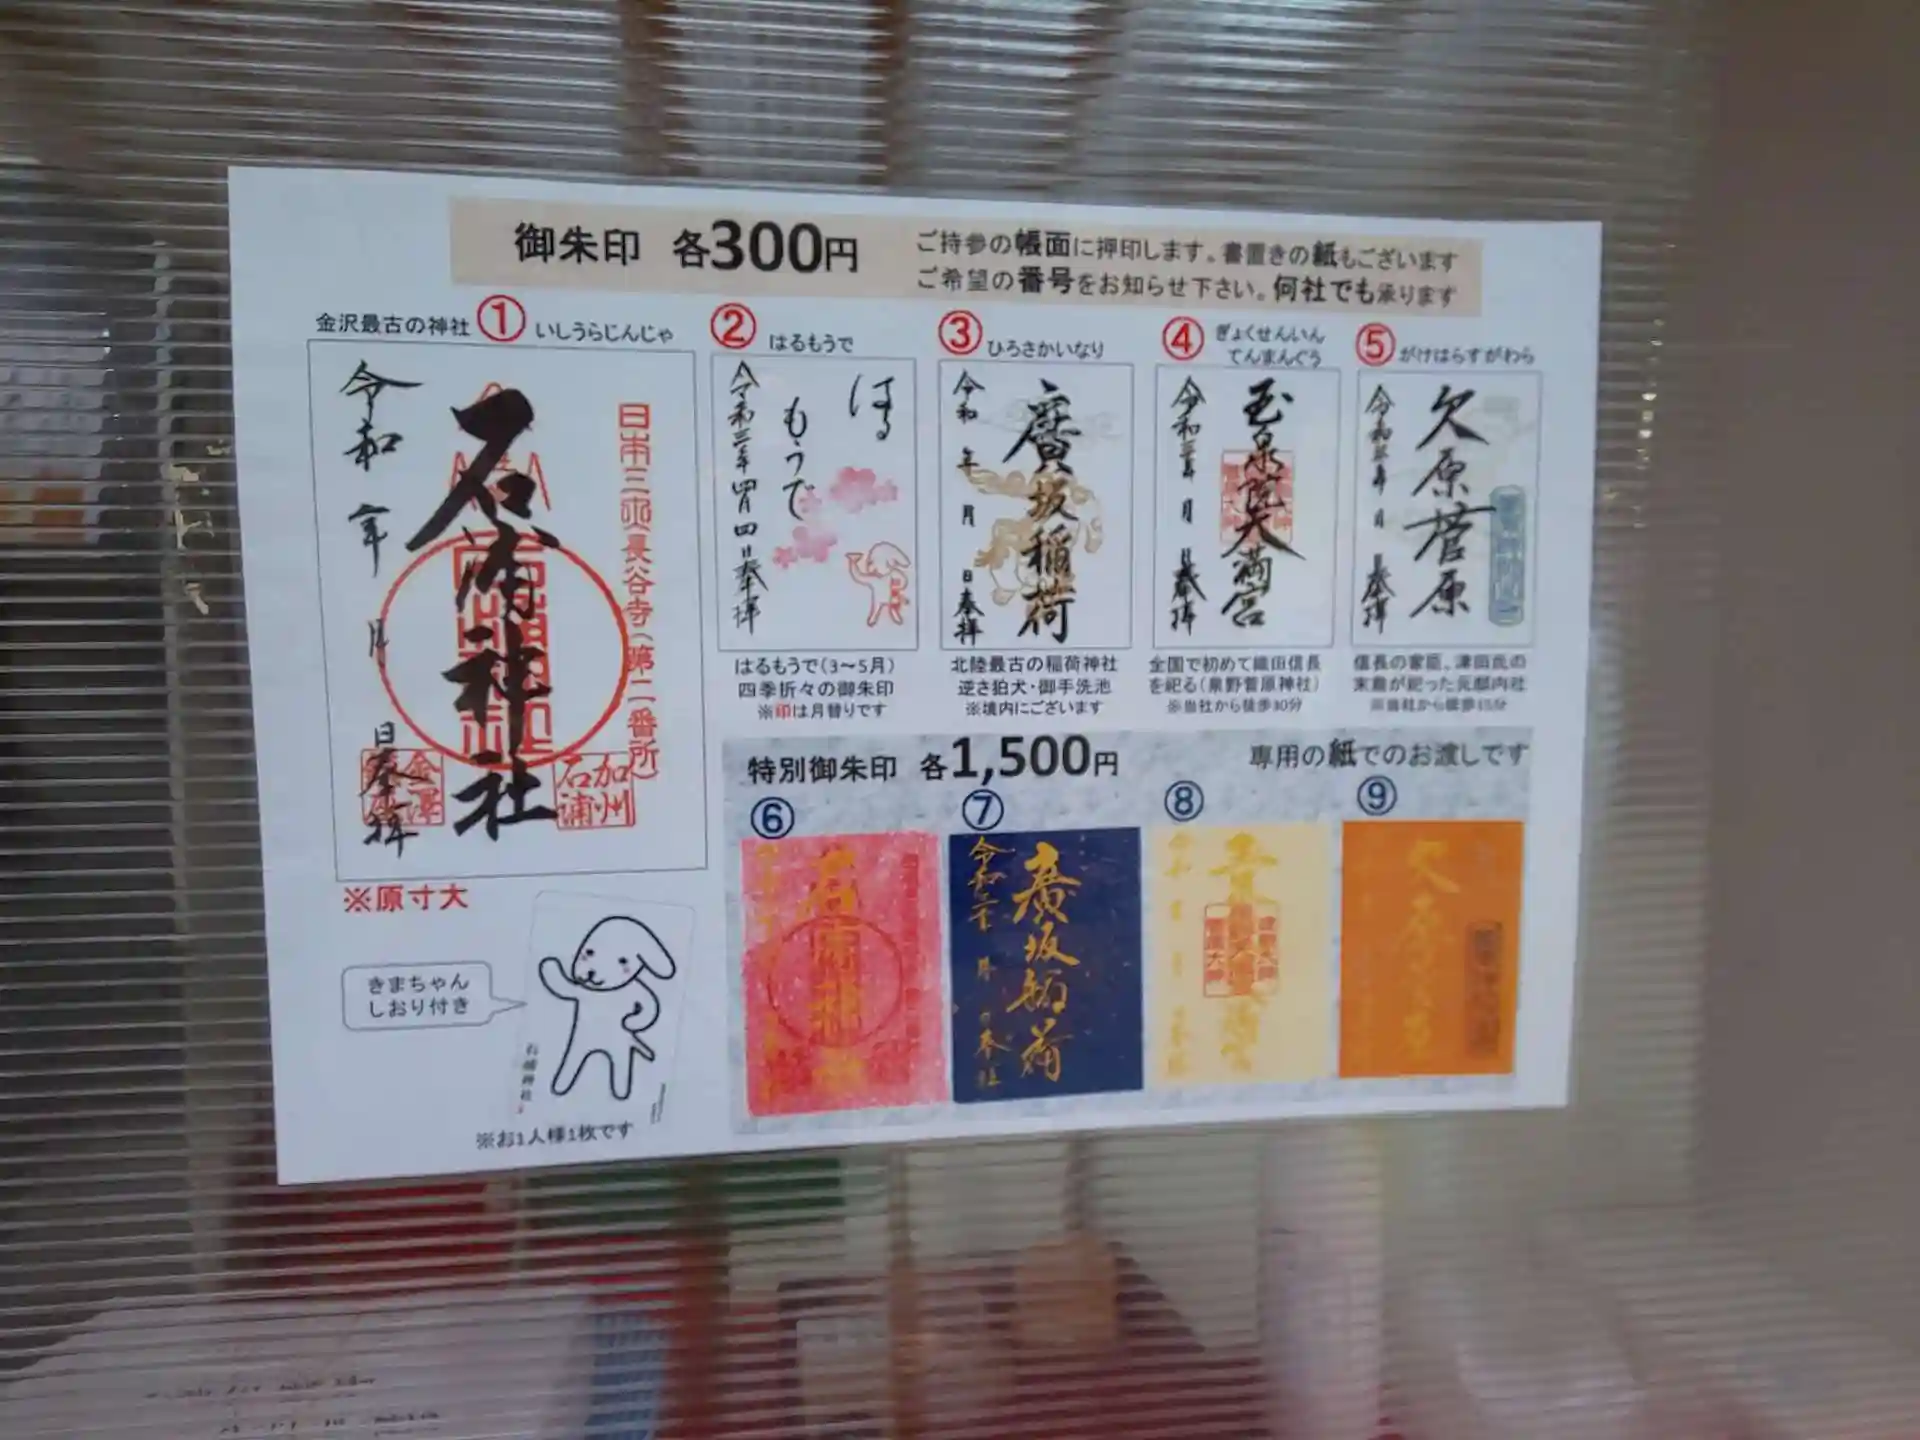 御朱印 各300円
ご持参の帳面に押印します。書置きの紙もございます
ご希望の番号をお知らせ下さい。何社でも承ります
金沢最古の神社 ① いしうらじんじゃ
令和 年 月 日 奉拝
石浦神社
日本三所長谷寺(第二番所)
加州
石浦
金澤
※原寸大
きまちゃん
しおり付き
石浦神社
※お1人様1枚です
② はるもうで
はる
もうで
令和三年四月四日奉拝
はるもうで(3~5月)
四季折々の御朱印
※印は月替りです
③ ひろさかいなり
令和 年 月 日奉拝
廣坂稲荷
北陸最古の稲荷神社
逆さ狛犬・御手洗池
※境内にございます
④ ぎょくせんいん
てんまんぐう
令和三年 月 日奉拝
玉泉院天満宮
全国で初めて織田信長
を祀る(泉野菅原神社)
※当社から徒歩30分
⑤ がけはらすがわら
令和三年 月 日奉拝
欠原菅原
信長の家臣、津田氏の
末裔が祀った元邸内社
※当社から徒歩15分
特別御朱印 各1,500円
専用の紙でのお渡しです
⑥
⑦
令和三年 月 日奉拝
廣坂稲荷
⑧
⑨